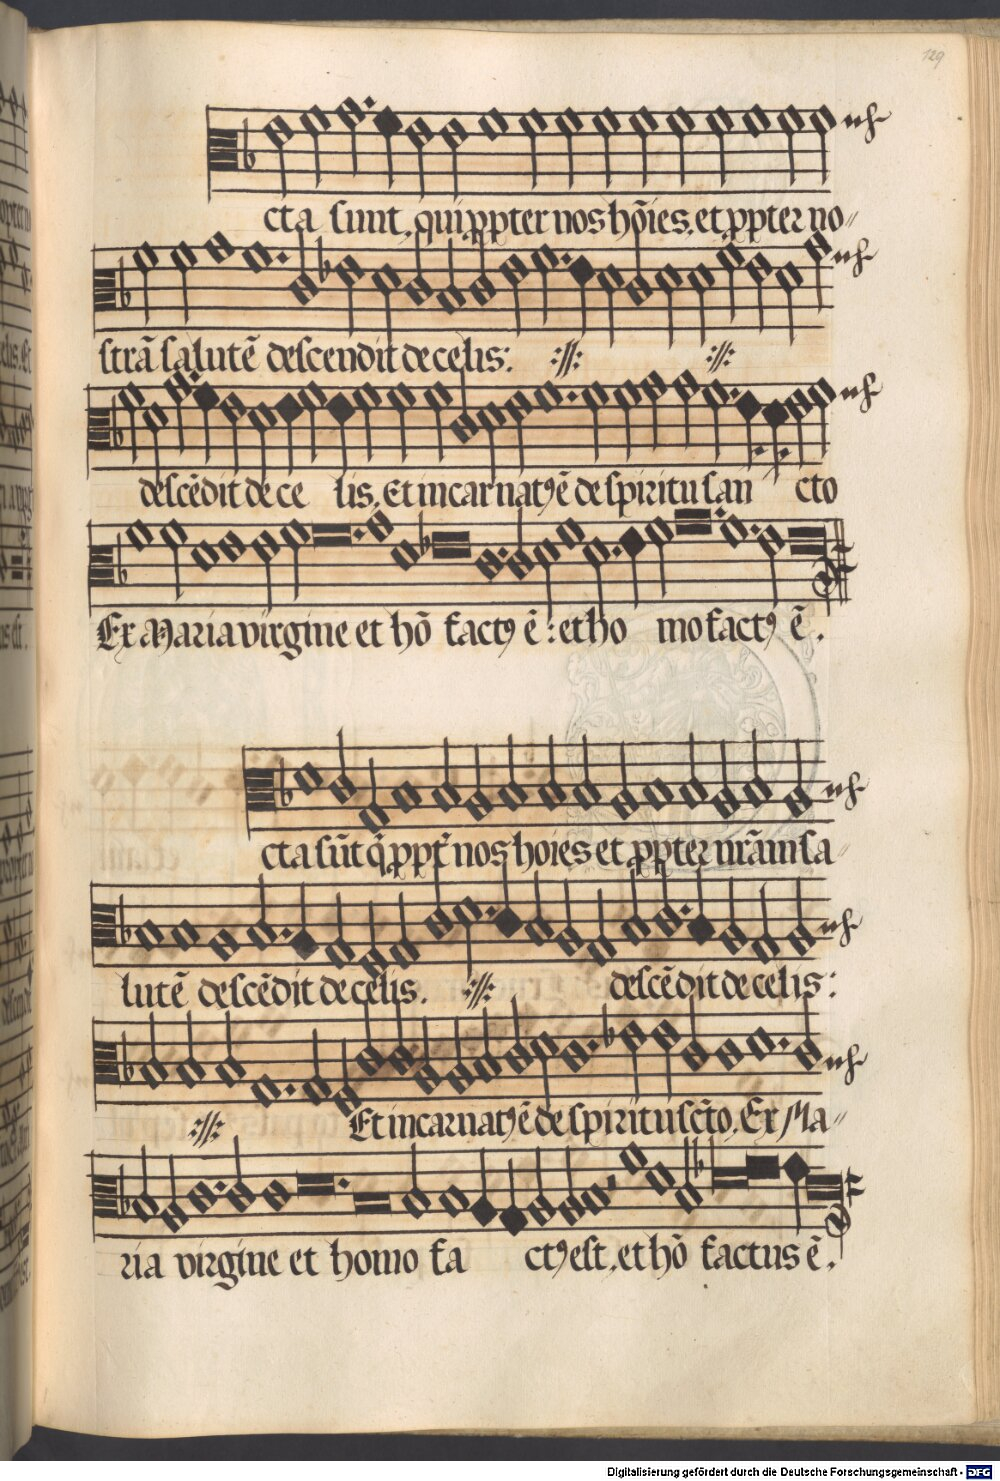 129
cta sunt, qui ꝓpter nos hõies, et ꝓpter no〃
strã salutẽ descendit de celis: ://: ://:
descẽdit de ce lis, Et incarnatꝰ ẽ de spiritu san cto
Ex Maria virgine et hõ factꝰ ẽ : et ho mo factꝰ ẽ .
cta sũt q̃ ꝓpt̃ nos hoies et ꝓpter nrãm sa〃
lutẽ descẽdit de celis. ://: descẽdit de celis:
://: Et incarnatꝰ ẽ de spiritu sc̃to, Ex Ma〃
ria virgine et homo fa ctꝰ est, et hõ factus ẽ.
Digitalisierung gefördert durch die Deutsche Forschungsgemeinschaft - DFG